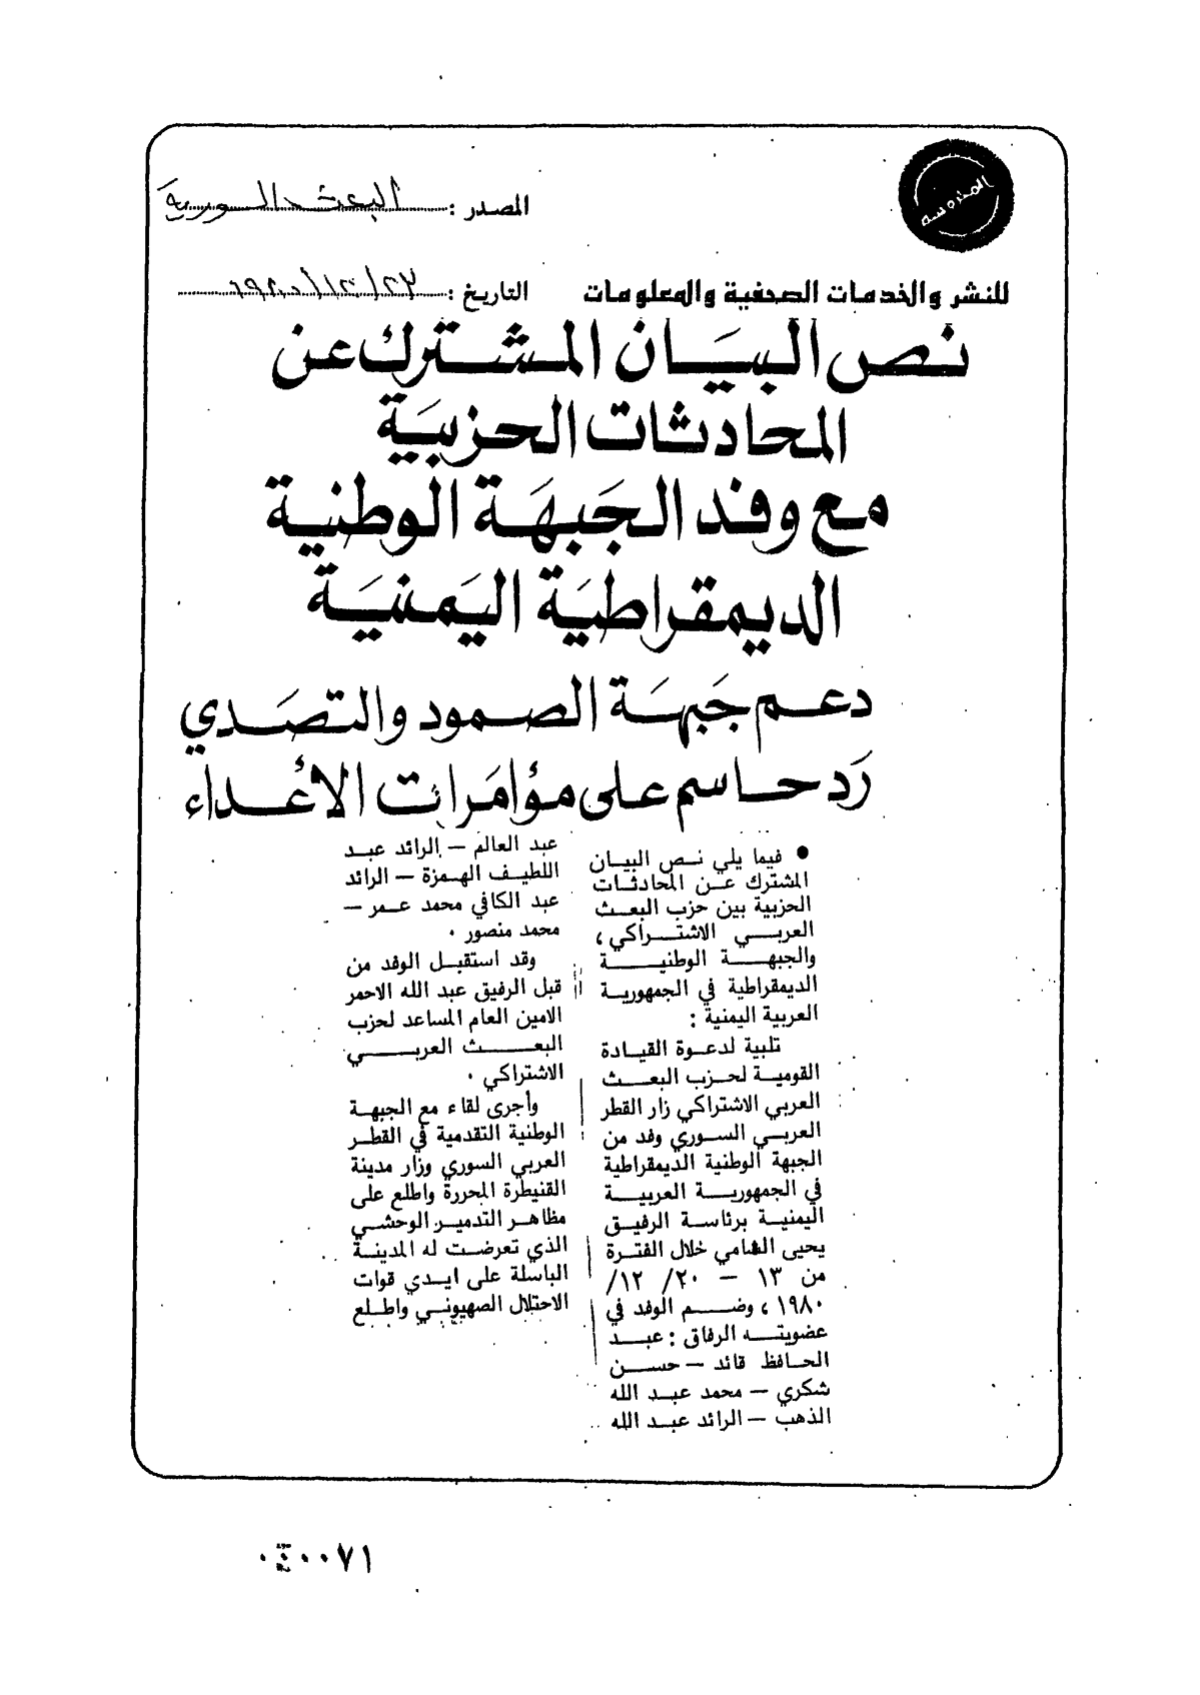 المحروسه
المصدر : البعث السورية
للنشر والخدمات الصحفية والمعلومات
التاريخ : ٢٣/١٢/١٩٨٠
نص البيان المشترك عن
المحادثات الحزبية
مع وفد الجبهة الوطنية
الديمقراطية اليمنية
دعم جبهة الصمود والتصدي
رد حاسم على مؤامرات الأعداء
● فيما يلي نص البيان
المشترك عن المحادثات
الحزبية بين حزب البعث
العربي الاشتراكي ،
والجبهة الوطنية
الديمقراطية في الجمهورية
العربية اليمنية :
تلبية لدعوة القيادة
القومية لحزب البعث
العربي الاشتراكي زار القطر
العربي السوري وفد من
الجبهة الوطنية الديمقراطية
في الجمهورية العربية
اليمنية برئاسة الرفيق
يحيى الشامي خلال الفترة
من ١٣ – ٢٠/ ١٢/
١٩٨٠ ، وضم الوفد في
عضويته الرفاق : عبد
الحافظ قائد – حسن
شكري – محمد عبد الله
الذهب – الرائد عبد الله
عبد العالم – الرائد عبد
اللطيف الهمزة – الرائد
عبد الكافي محمد عمر –
محمد منصور .
وقد استقبل الوفد من
قبل الرفيق عبد الله الاحمر
الامين العام المساعد لحزب
البعث العربي
الاشتراكي .
وأجرى لقاء مع الجبهة
الوطنية التقدمية في القطر
العربي السوري وزار مدينة
القنيطرة المحررة واطلع على
مظاهر التدمير الوحشي
الذي تعرضت له المدينة
الباسلة على ايدي قوات
الاحتلال الصهيوني واطلع
٠٤٠٠٧١